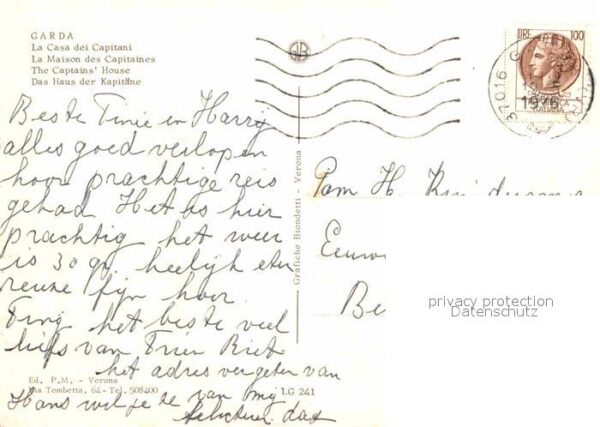 GARDA
La Casa dei Capitani
La Maison des Capitaines
The Captains' House
Das Haus der Kapitäne
LIRE 100
37016
1976
ITALIANA
Beste Tinie en Harry
alles goed verlopen
hoor prachtige reis
gehad Het is hier
prachtig het weer
is 30 gr, heelijk eten
reuze fijn hoor
Tiny het beste veel
liefs van Trien Riet
het adres vergeten van
Hans wil je te van mij
feliciteren das
Grafiche Biondetti - Verona
Ed. P.M. - Verona
Via Tombetta, 64 - Tel. 508400
LG 241
Fam H.
Eeuw
Be
privacy protection
Datenschutz